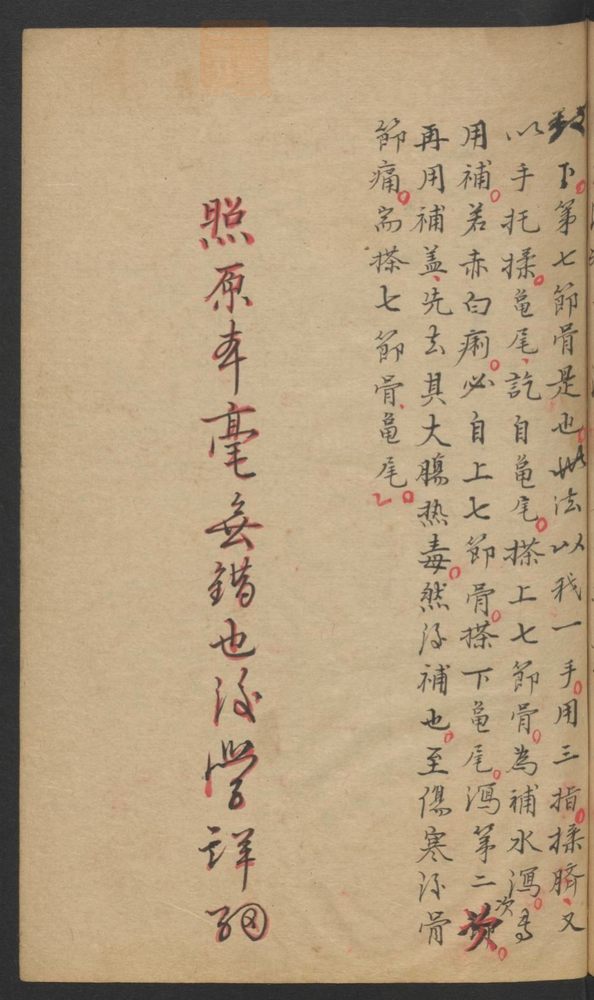 數下第七節骨是也此法以我一手用三指揉臍又
以手托揉龜尾訖自龜尾搽上七節骨為補水瀉專
用補若赤白痢必自上七節骨搽下龜尾瀉第二次
再用補盖先去其大腸热毒然後補也至傷寒後骨
節痛耑搽七節骨龜尾
照原本毫無錯也後學詳細